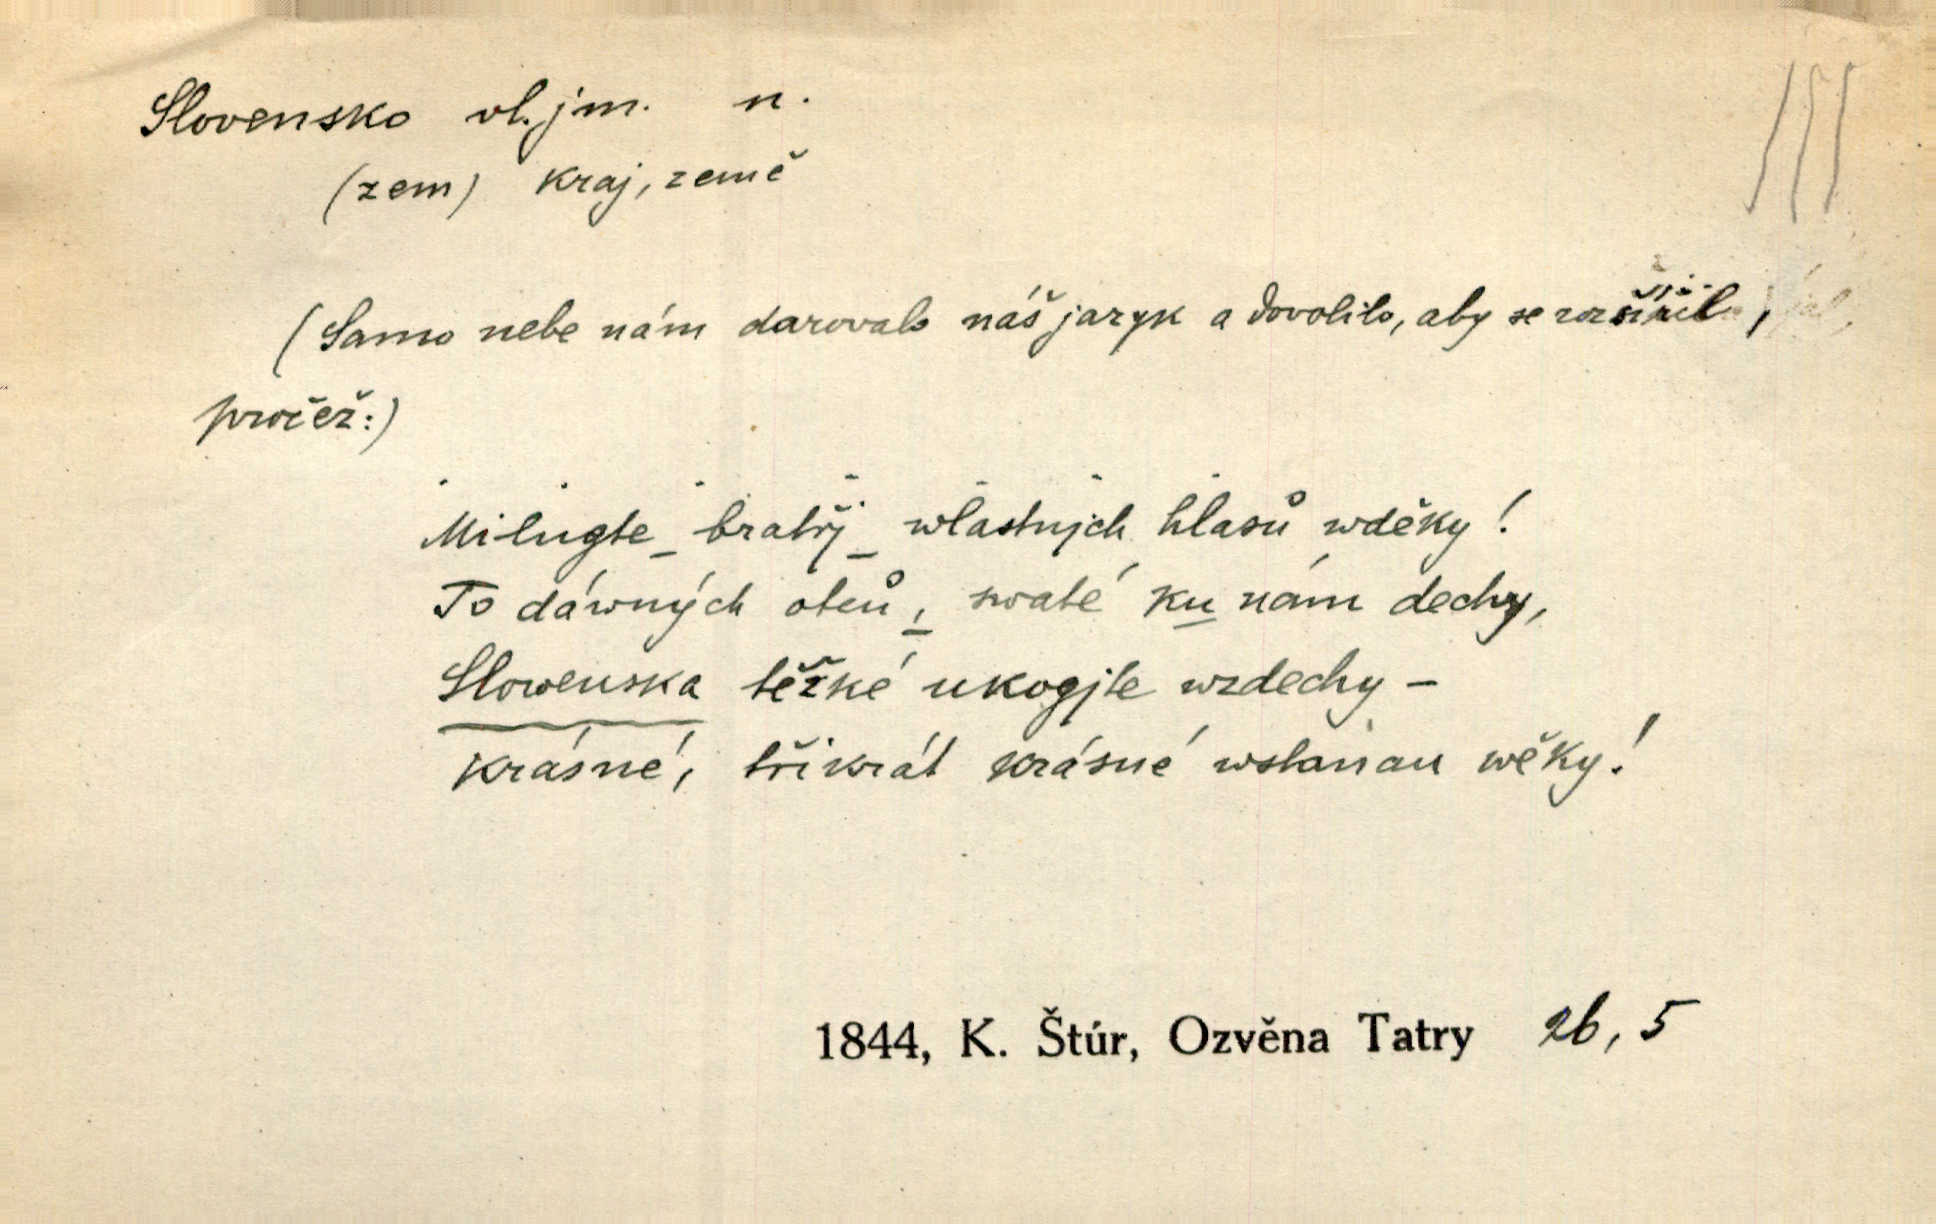 Slovensko vl. jm. n.
(zem) kraj, země
(Samo nebe nám darovalo náš jazyk a dovolilo, aby se rozšířil,
pročež:)
Milugte bratřj wlastnjch hlasů wděky!
To dáwných otců, swaté ku nám dechy,
Slowenska těžké ukogjte wzdechy –
krásné, třikrát krásné wstanau wěky!
1844, K. Štúr, Ozvěna Tatry 26, 5